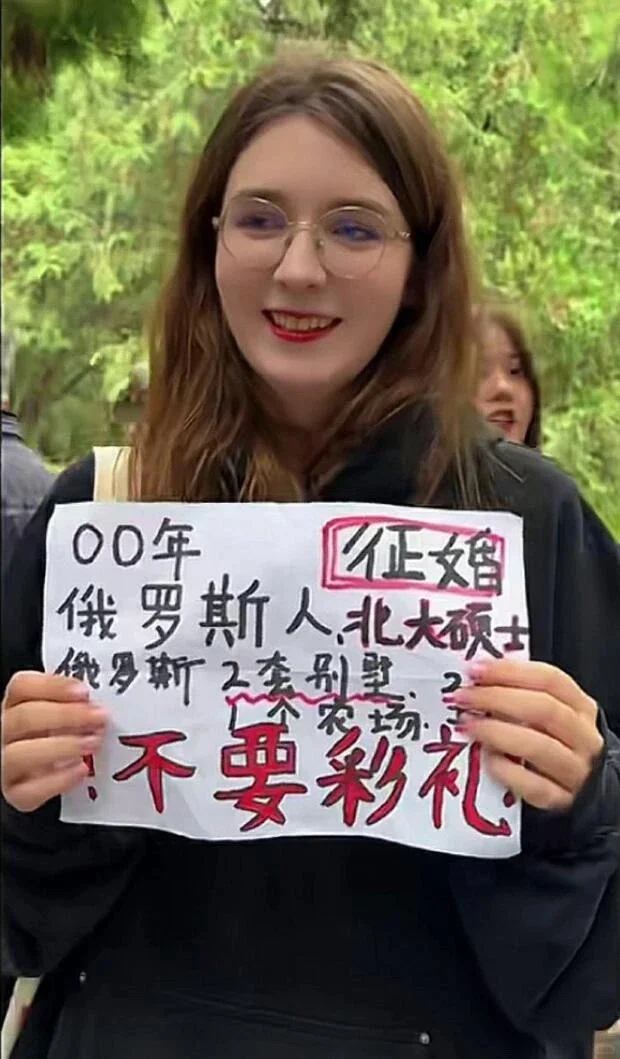 00年 征婚
俄罗斯人、北大硕士
俄罗斯2套别墅、2
1个农场.
!不要彩礼!